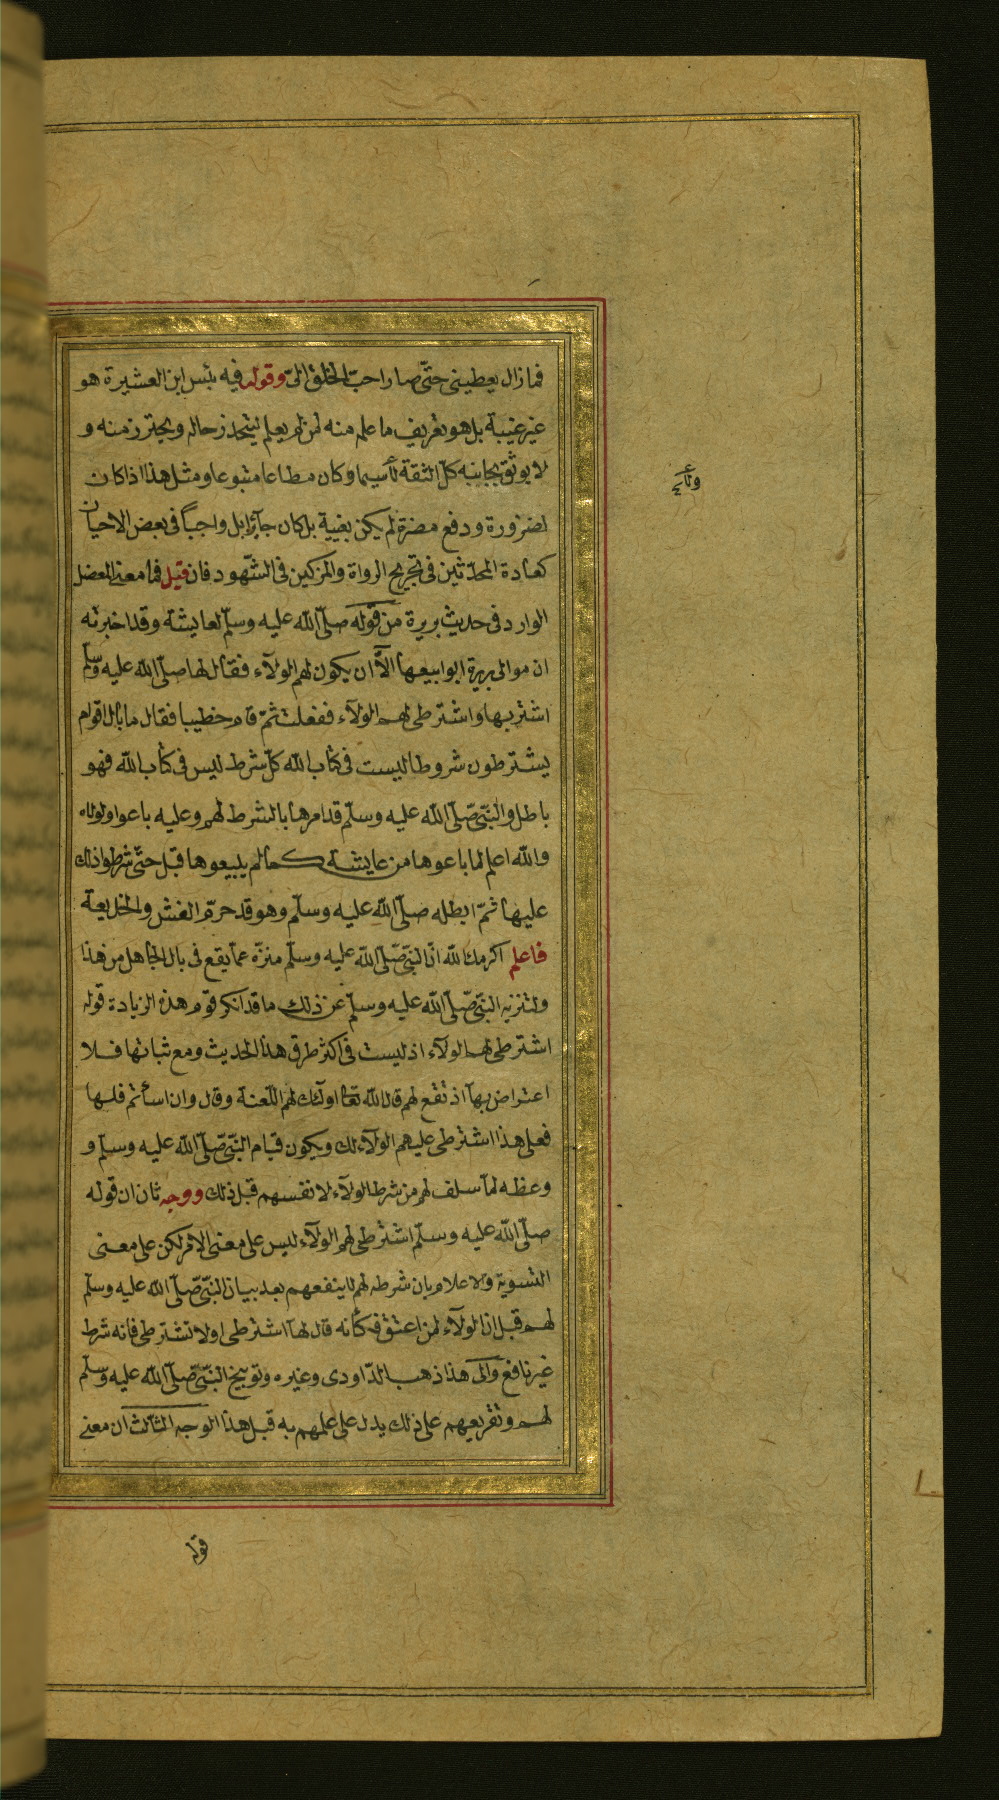 فما زال يعطيني حتّى صار احبّ الخلق اليّ وقوله فيه بئس ابن العشيرة هو
غير غيبة بل هو تعريف ما علم منه لمن لم يعلم ليحذر حاله ويحترز منه و
لا يوثق بجانبه كلّ الثقة لا سيما وكان مطاعا متبوعا ومثل هذا اذا كان
لضرورة ودفع مضرة لم يكن بغيبة بل كان جآئزا بل واجباً فى بعض الاحيان
كعادة المحدّثين فى تجريح الرواة والمزكين فى الشّهود فان قيل فما معنى المعضل
الوارد فى حديث بريرة من قوله صلّى اللّه عليه وسلّم لعايشة وقد اخبرته
ان موالى بريرة ابوا بيعها الّآ ان يكون لهم الولآء فقال لها صلّى اللّه عليه وسلّم
اشتريها واشترطى لهم الولآء ففعلت ثمّ قام خطيبا فقال ما بال اقوام
يشترطون شروطا ليست فى كتاب اللّه كلّ شرط ليس فى كتاب اللّه فهو
باطل والنّبىّ صلّى اللّه عليه وسلّم قد امرها بالشرط لهم وعليه باعوا ولولاه
واللّه اعلم لما باعوها من عايشة كما لم يبيعوها قبل حتى شرطوا ذلك
عليها ثمّ ابطله صلّى اللّه عليه وسلّم وهو قد حرّم الغش والخديعة
فاعلم اكرمك اللّه انّ النبىّ صلّى اللّه عليه وسلّم منزّه عمّا يقع فى بال الجاهل من هذا
ولتنزيه النبّى صلّى اللّه عليه وسلّم عن ذلك ما قد انكر قوم هذه الزيادة قوله
اشترطى لهم الولآء اذ ليست فى اكثر طرق هذا الحديث ومع ثباتها فلا
اعتراض بهآ اذ تقع لهم قال اللّه تعا اولئك لهم اللّعنة وقال وان اسأتم فلها
فعلى هذا اشترطى عليهم الولآء لك ويكون قيام النّبىّ صلّى اللّه عليه وسلم و
وعظه لما سلف لهم من شرط الولآء لانفسهم قبل ذلك ووجه ثان ان قوله
صلّى اللّه عليه وسلّم اشترطى لهم الولآء ليس على معنى الامر لكن على معنى
التسوية والاعلام بان شرطه لهم لا ينفعهم بعد بيان النّبىّ صلّى اللّه عليه وسلّم
لهم قبل انّ الولآء لمن اعتق فكأنّه قال لهآ اشترطى او لا تشترطى فانه شرط
غير نافع والى هذا ذهب الدّاودى وغيره وتوبيخ النبّىّ صلّى اللّه عليه وسلّم
لهم وتقريعهم على ذلك يدل على علمهم به قبل هذا الوجه الثالث ان معنى
قوله